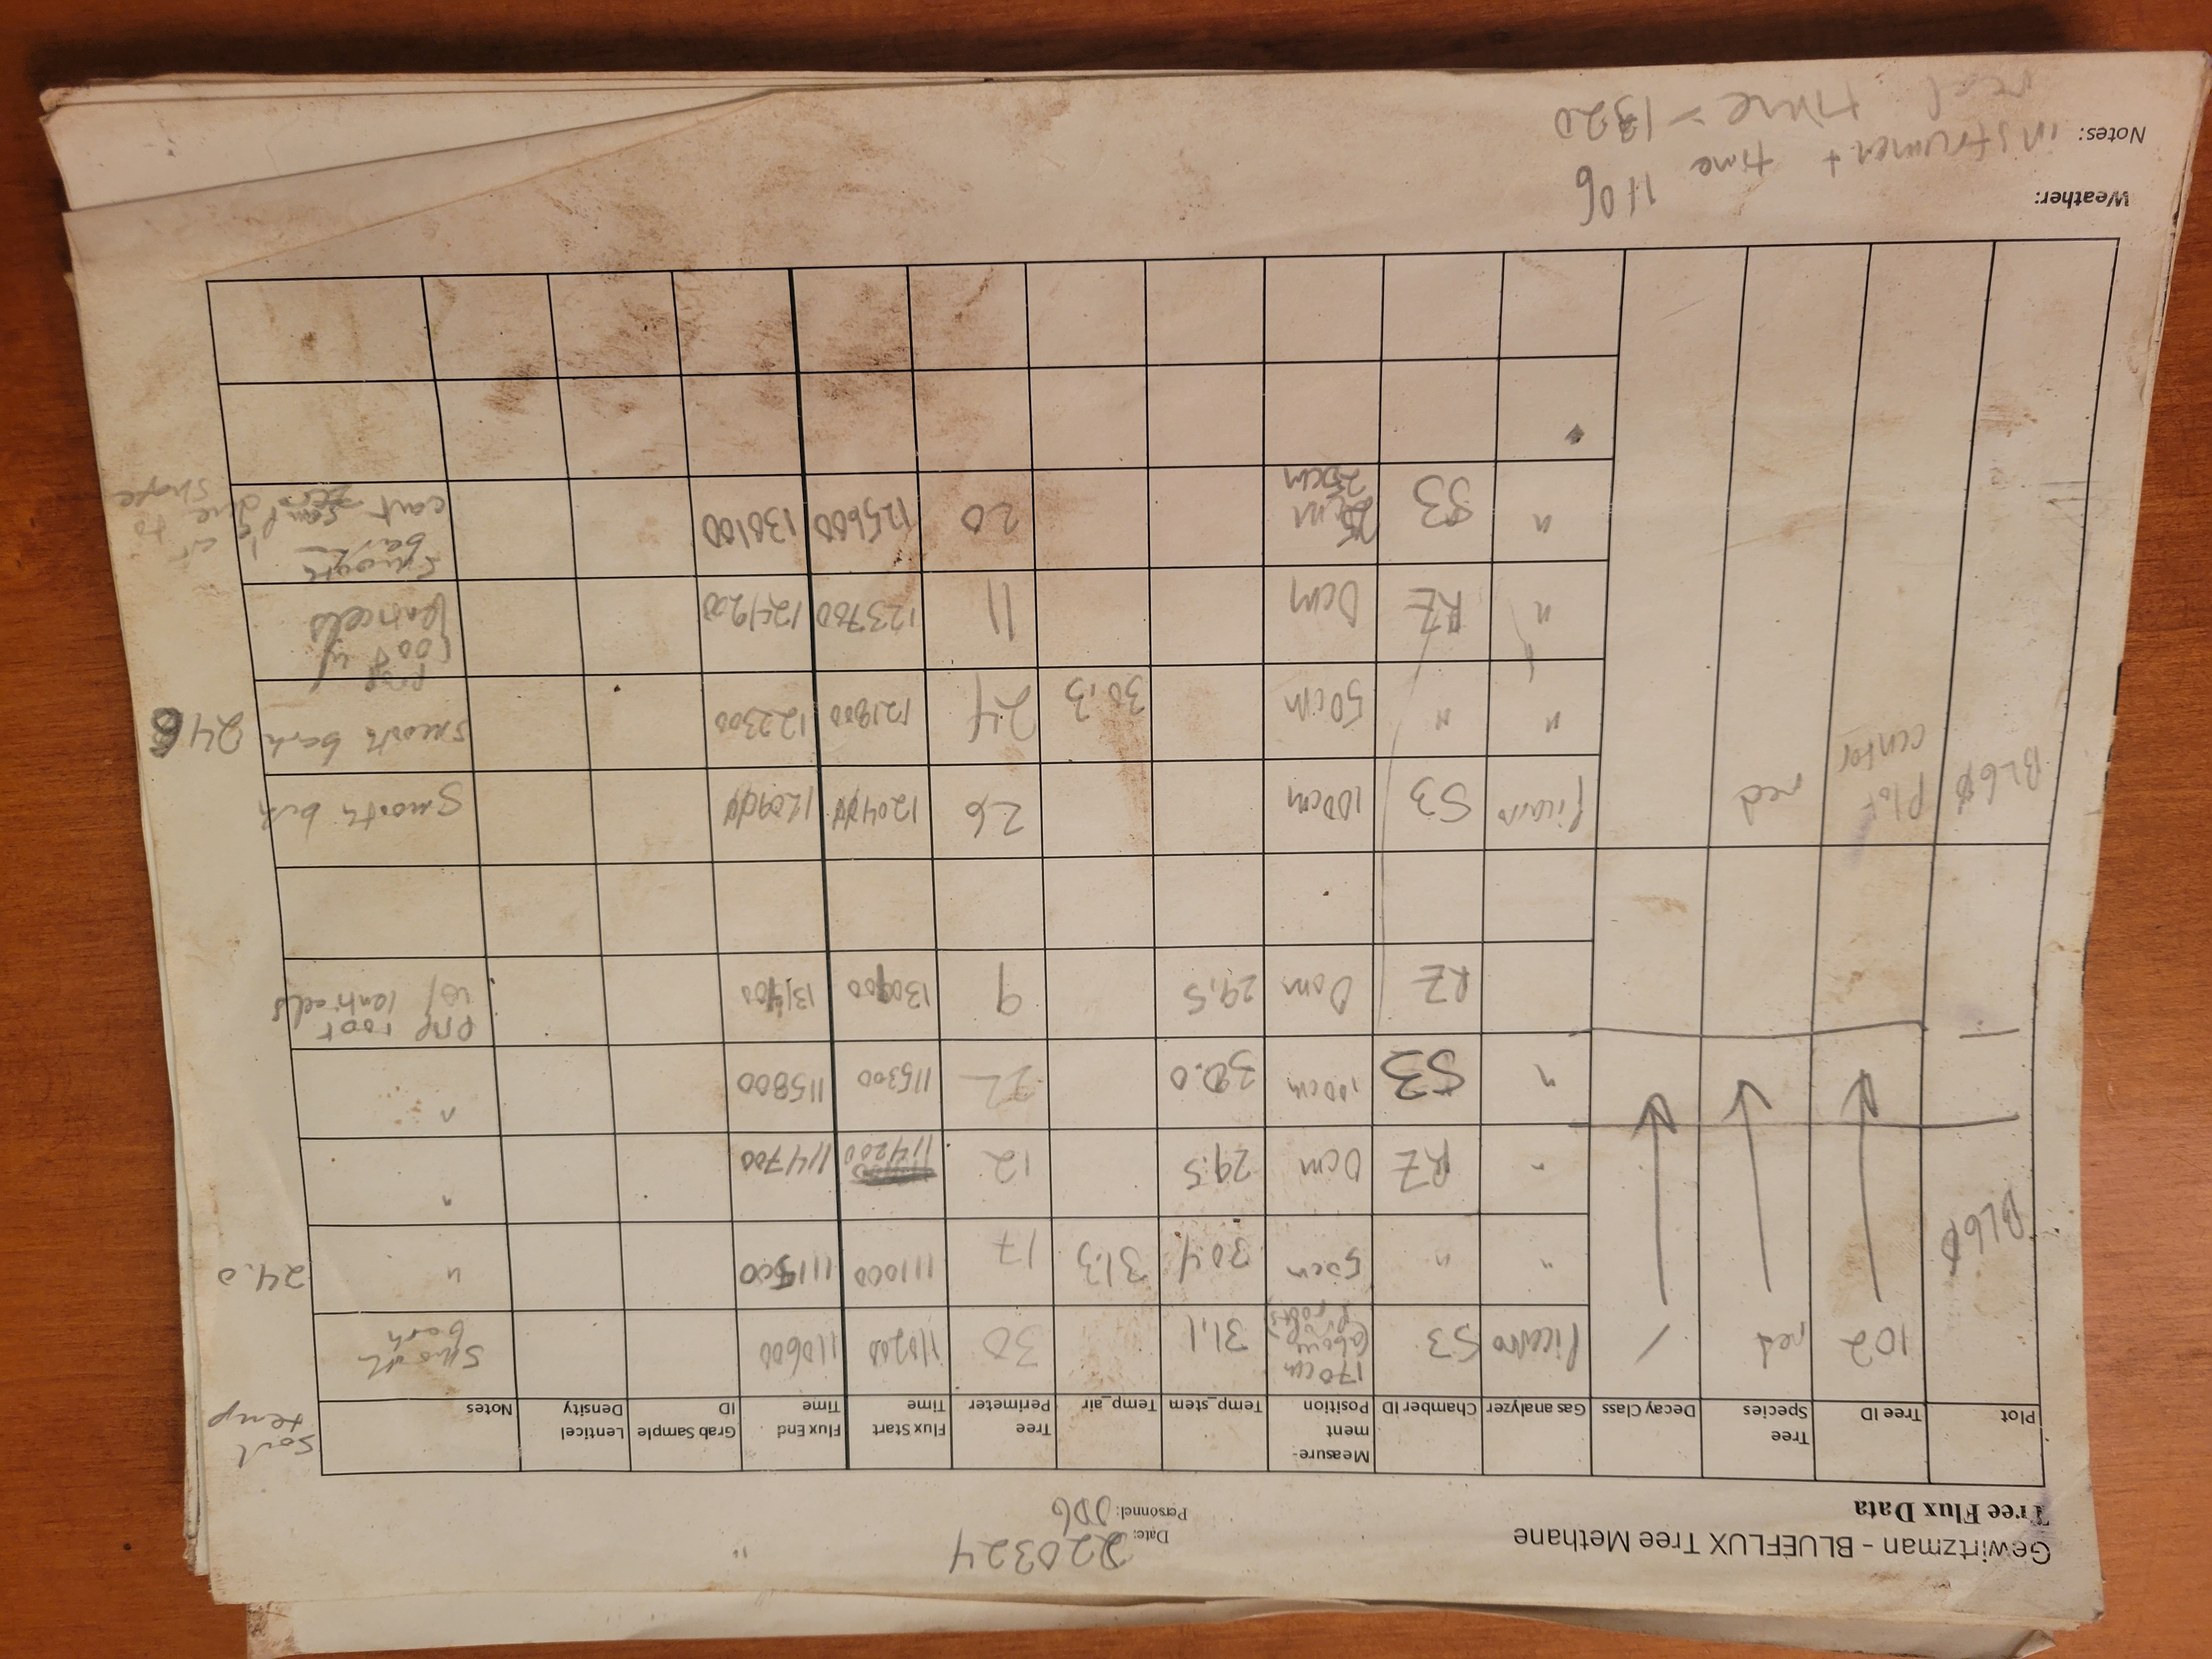 Gewirtzman - BLUEFLUX Tree Methane
Tree Flux Data
Date: 220324
Personnel: JDG
Plot Tree ID Tree Species Decay Class Gas analyzer Chamber ID Measure-ment Position Temp_stem Temp_air Tree Perimeter Flux Start Time Flux End Time Grab Sample ID Lenticel Density Notes Soil temp
102 red / Picarro S3 170cm (above prop roots) 31.1 30 110200 110600 Smooth bark
BL6φ " " 50cm 30.4 31.3 17 111000 111500 " 24.0
" RZ 0cm 29.5 12 114200 114700 "
" S3 100cm 30.0 22 115300 115800 "
RZ 0cm 29.5 9 130900 131400 prop root w/ lenticels
BL6φ Plot center red Picarro S3 100cm 26 1204φφ 1209φφ Smooth bark
" " 50cm 30.3 24 121800 122300 smooth bark 246
" RZ 0cm 11 123700 124200 prop root w/ lenticels
" S3 25cm 20 125600 130100 smooth bark can't sample due to shape
Weather:
Notes: instrument time 1106
real time = 1320